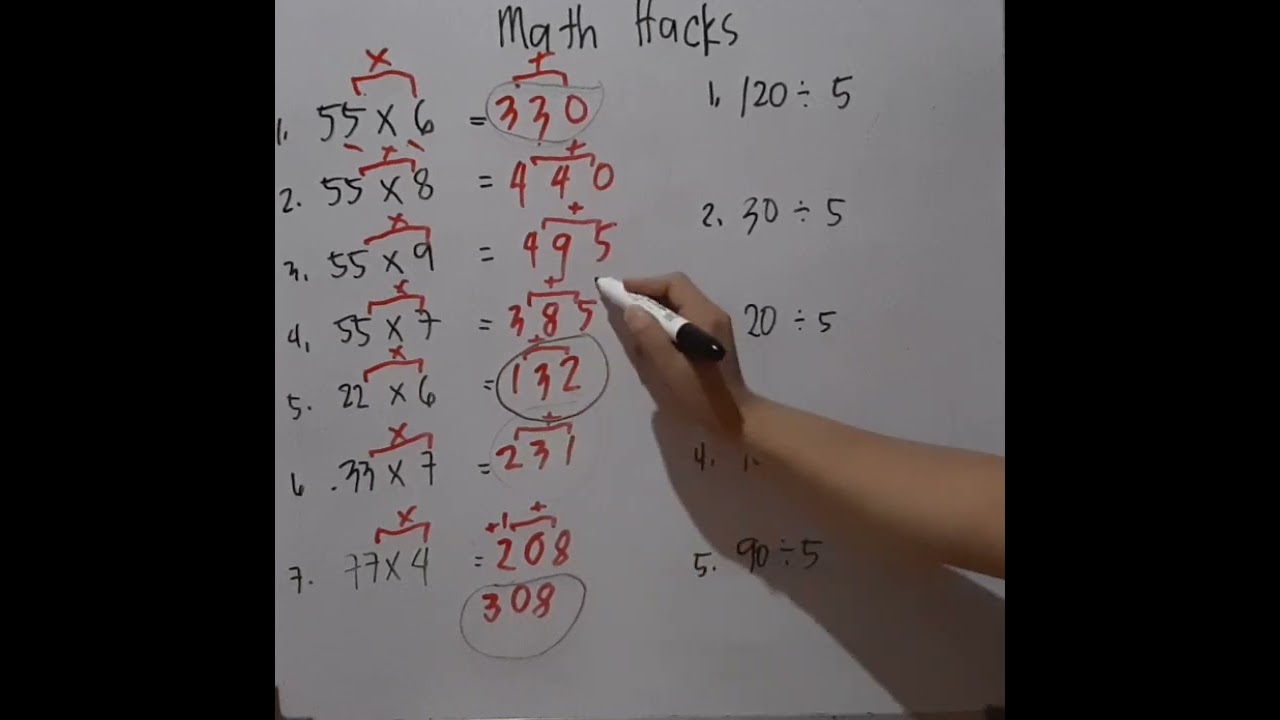 Math Hacks
x
+
1. 55 x 6 = 330
+
+
2. 55 x 8 = 440
x
+
3. 55 x 9 = 495
x
+
4. 55 x 7 = 385
x
+
5. 22 x 6 = 132
x
+
6. 33 x 7 = 231
x
+1 +
7. 77 x 4 = 208
308
1. 120 ÷ 5
2. 30 ÷ 5
20 ÷ 5
4.
5. 90 ÷ 5